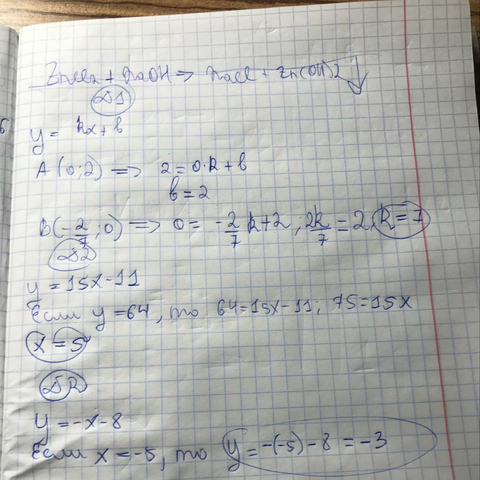 ZnCl2 + NaOH => NaCl + Zn(OH)2 ↓
№1
y = kx + b
A (0; 2) => 2 = 0·k + b
b = 2
B(-2/7; 0) => 0 = -2/7 k + 2, 2k/7 = 2, k = 7
№2
y = 15x - 11
Если y = 64, то 64 = 15x - 11; 75 = 15x
x = 5
№2
y = -x - 8
Если x = -5, то y = -(-5) - 8 = -3